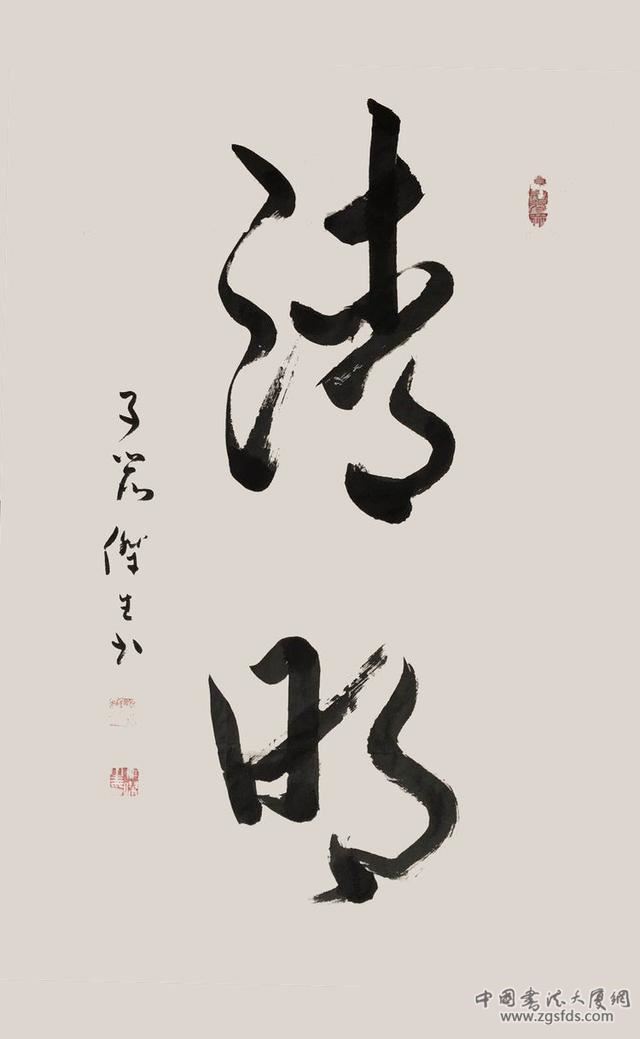 清明
傑生书
中国书法大厦網
www.zgsfds.com